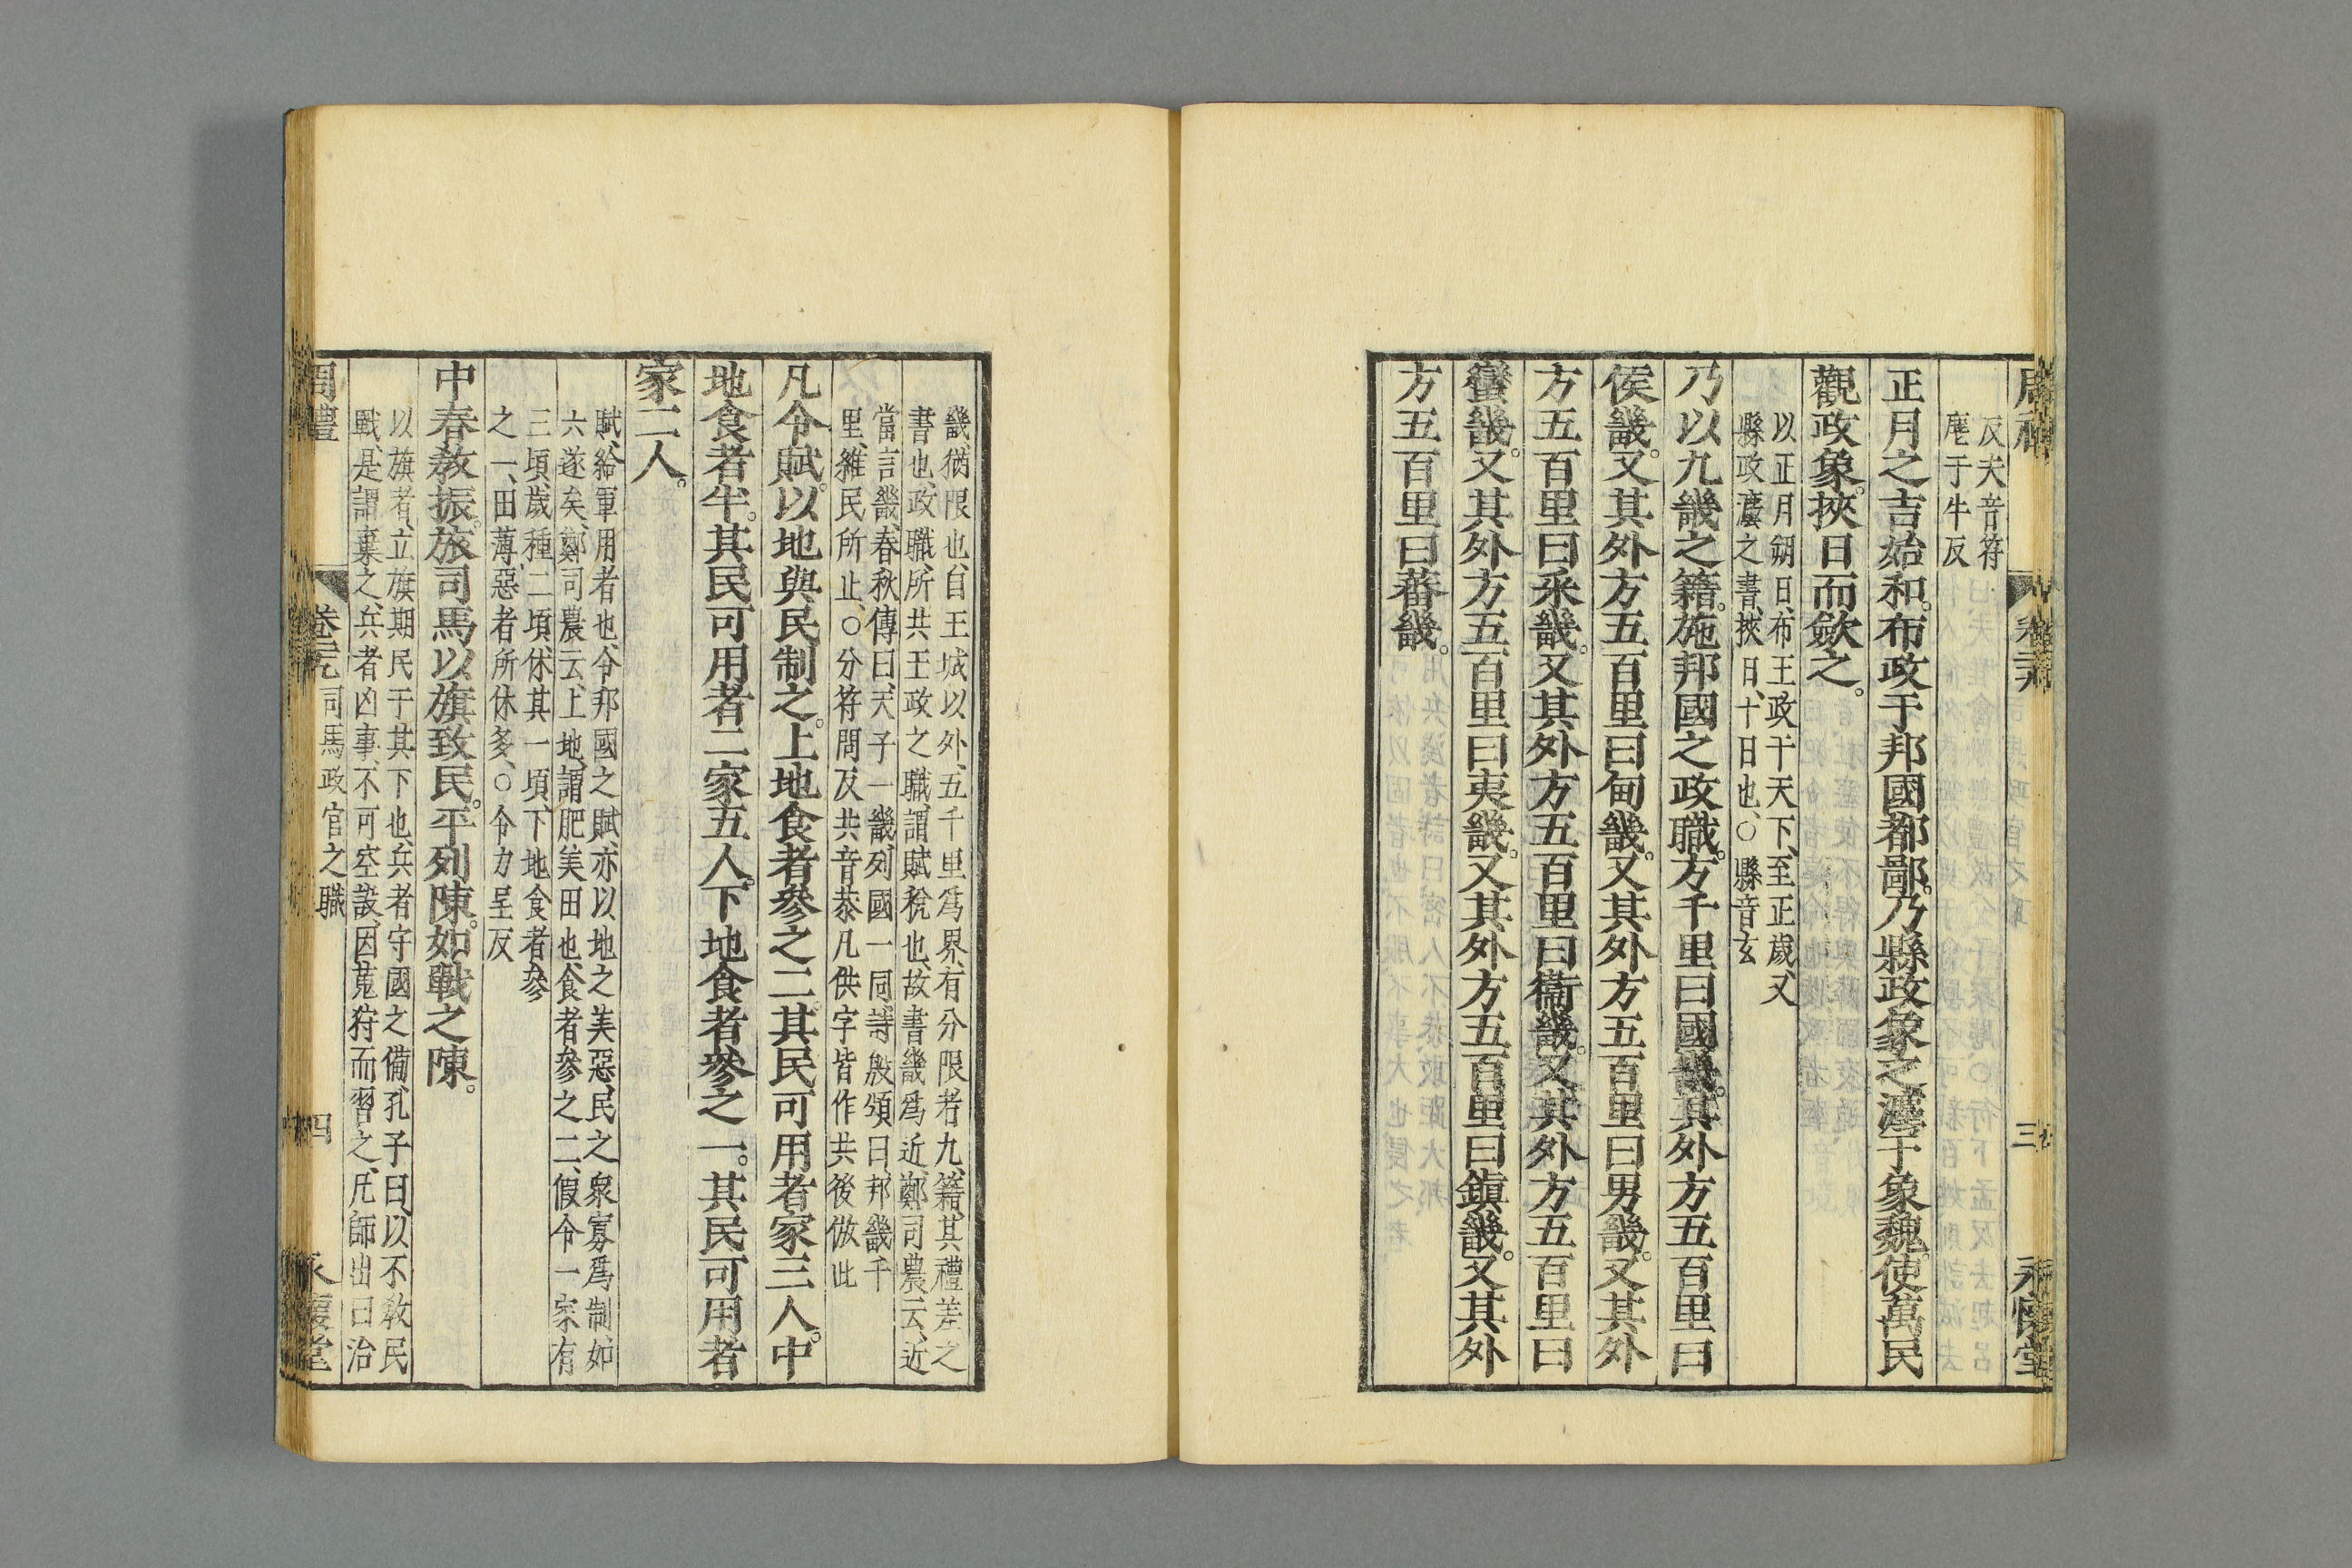 反夫音符
麀于牛反
正月之吉始和。布政于邦國都鄙。乃縣政象之灋于象魏。使萬民
觀政象。挾日而斂之。
以正月朔日、布王政于天下、至正歲、又
縣政灋之書、挾日、十日也、○縣音玄
乃以九畿之籍。施邦國之政職。方千里曰國畿。其外方五百里曰
侯畿。又其外方五百里曰甸畿。又其外方五百里曰男畿。又其外
方五百里曰采畿。又其外方五百里曰衞畿。又其外方五百里曰
蠻畿。又其外方五百里曰夷畿。又其外方五百里曰鎭畿。又其外
方五百里曰蕃畿。
畿、猶限也、自王城以外、五千里爲界、有分限者九、籍、其禮差之
書也、政職、所共王政之職、謂賦稅也、故書畿爲近、鄭司農云、近
當言畿、春秋傳曰、天子一畿、列國一同、詩殷頌曰、邦畿千
里、維民所止、○分符問反共音恭凡供字皆作共後倣此
凡令賦。以地與民制之。上地食者參之二。其民可用者家三人。中
地食者半。其民可用者二家五人。下地食者參之一。其民可用者
家二人。
賦、給軍用者也、令邦國之賦、亦以地之美惡、民之衆寡爲制、如
六遂矣、鄭司農云、上地、謂肥美田也、食者參之二、假令一家有
三頃、歲種二頃、休其一頃、下地食者參
之一、田薄惡者所休多、○令力呈反
中春敎振旅司馬以旗致民。平列陳。如戰之陳。
以旗者、立旗期民于其下也、兵者守國之備、孔子曰、以不敎民
戰、是謂棄之、兵者凶事、不可空設、因蒐狩而習之、凡師出曰治
周禮
司馬政官之職
四
永懷堂